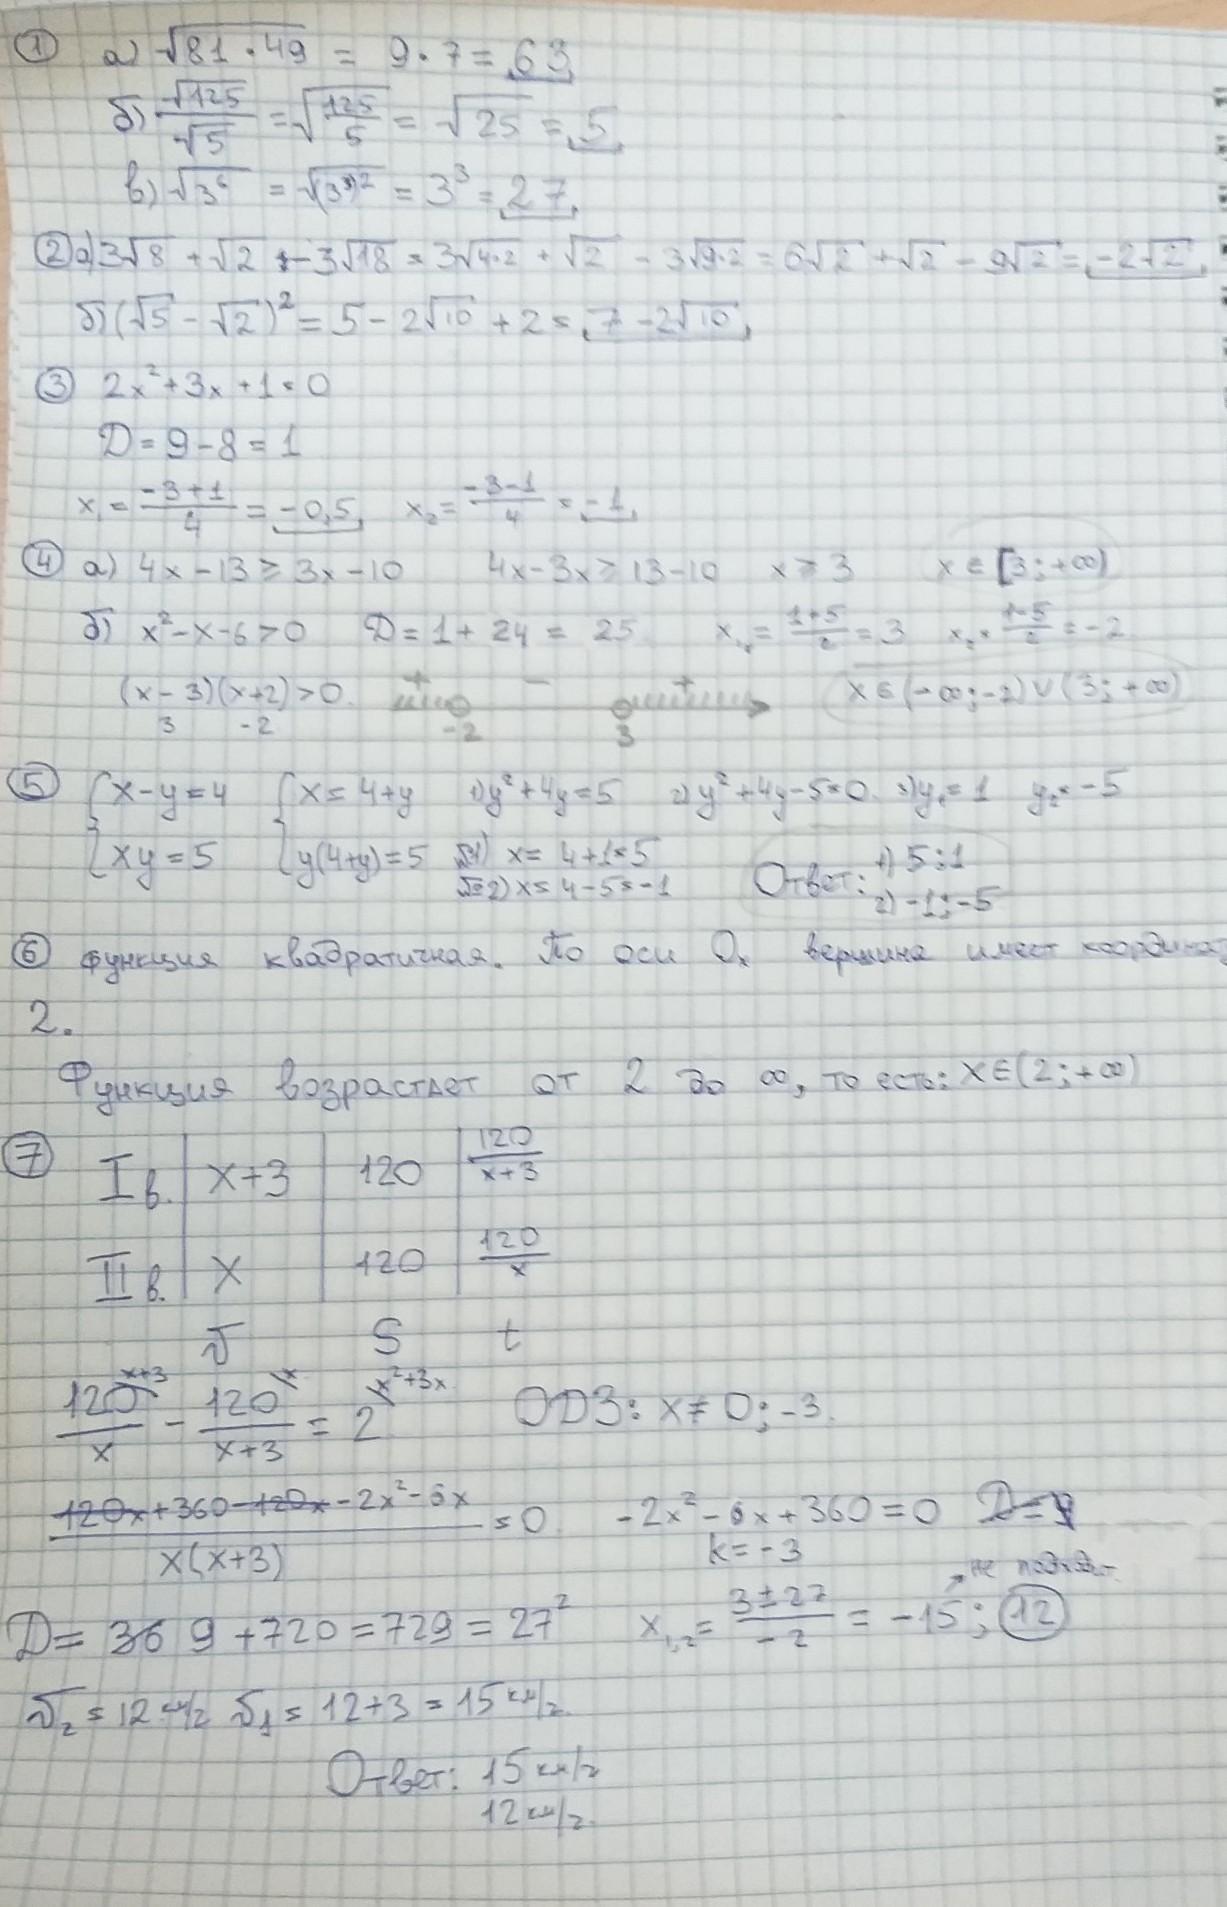 ① а) √81·49 = 9·7 = 63
б) √125/√5 = √(125/5) = √25 = 5
в) √3⁶ = √(3³)² = 3³ = 27
② а) 3√8 + √2 - 3√18 = 3√4·2 + √2 - 3√9·2 = 6√2 + √2 - 9√2 = -2√2
б) (√5 - √2)² = 5 - 2√10 + 2 = 7 - 2√10
③ 2x² + 3x + 1 = 0
D = 9 - 8 = 1
x₁ = (-3+1)/4 = -0,5 x₂ = (-3-1)/4 = -1
④ а) 4x - 13 ≥ 3x - 10 4x - 3x ≥ 13 - 10 x ≥ 3 x ∈ [3; +∞)
б) x² - x - 6 > 0 D = 1 + 24 = 25 x₁ = (1+5)/2 = 3 x₂ = (1-5)/2 = -2
(x - 3)(x+2) > 0. + - + x ∈ (-∞; -2) ∪ (3; +∞)
3 -2 -2 3
⑤ { x - y = 4 { x = 4 + y 1) y² + 4y = 5 2) y² + 4y - 5 = 0. 3) y₁ = 1 y₂ = -5
{ xy = 5 { y(4+y) = 5 1) x = 4 + 1 = 5 Ответ: 1) 5; 1
2) x = 4 - 5 = -1 2) -1; -5
⑥ функция квадратичная. По оси Ox вершина имеет
2.
Функция возрастает от 2 до ∞, то есть: x ∈ (2; +∞)
⑦ I в. x+3 120 120/(x+3)
II в. x 120 120/x
v S t
120/x - 120/(x+3) = 2 x+3 x x²+3x ОДЗ: x ≠ 0; -3.
(120x + 360 - 120x - 2x² - 6x)/(x(x+3)) = 0. -2x² - 6x + 360 = 0 D =
k = -3
не подходит.
D = 9 + 720 = 729 = 27² x₁,₂ = (3 ± 27)/-2 = -15; 12
v₂ = 12 км/ч v₁ = 12 + 3 = 15 км/ч.
Ответ: 15 км/ч
12 км/ч.